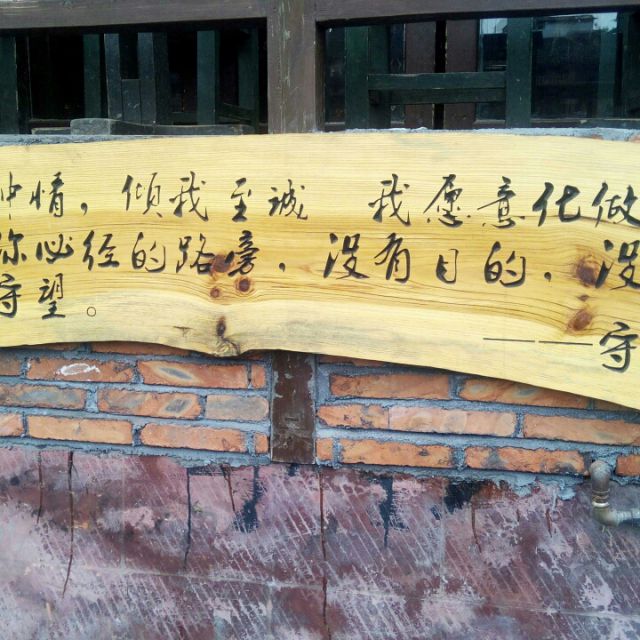 钟情，倾我至诚 我愿意化做
你必经的路旁．没有目的．没
守望。
——守